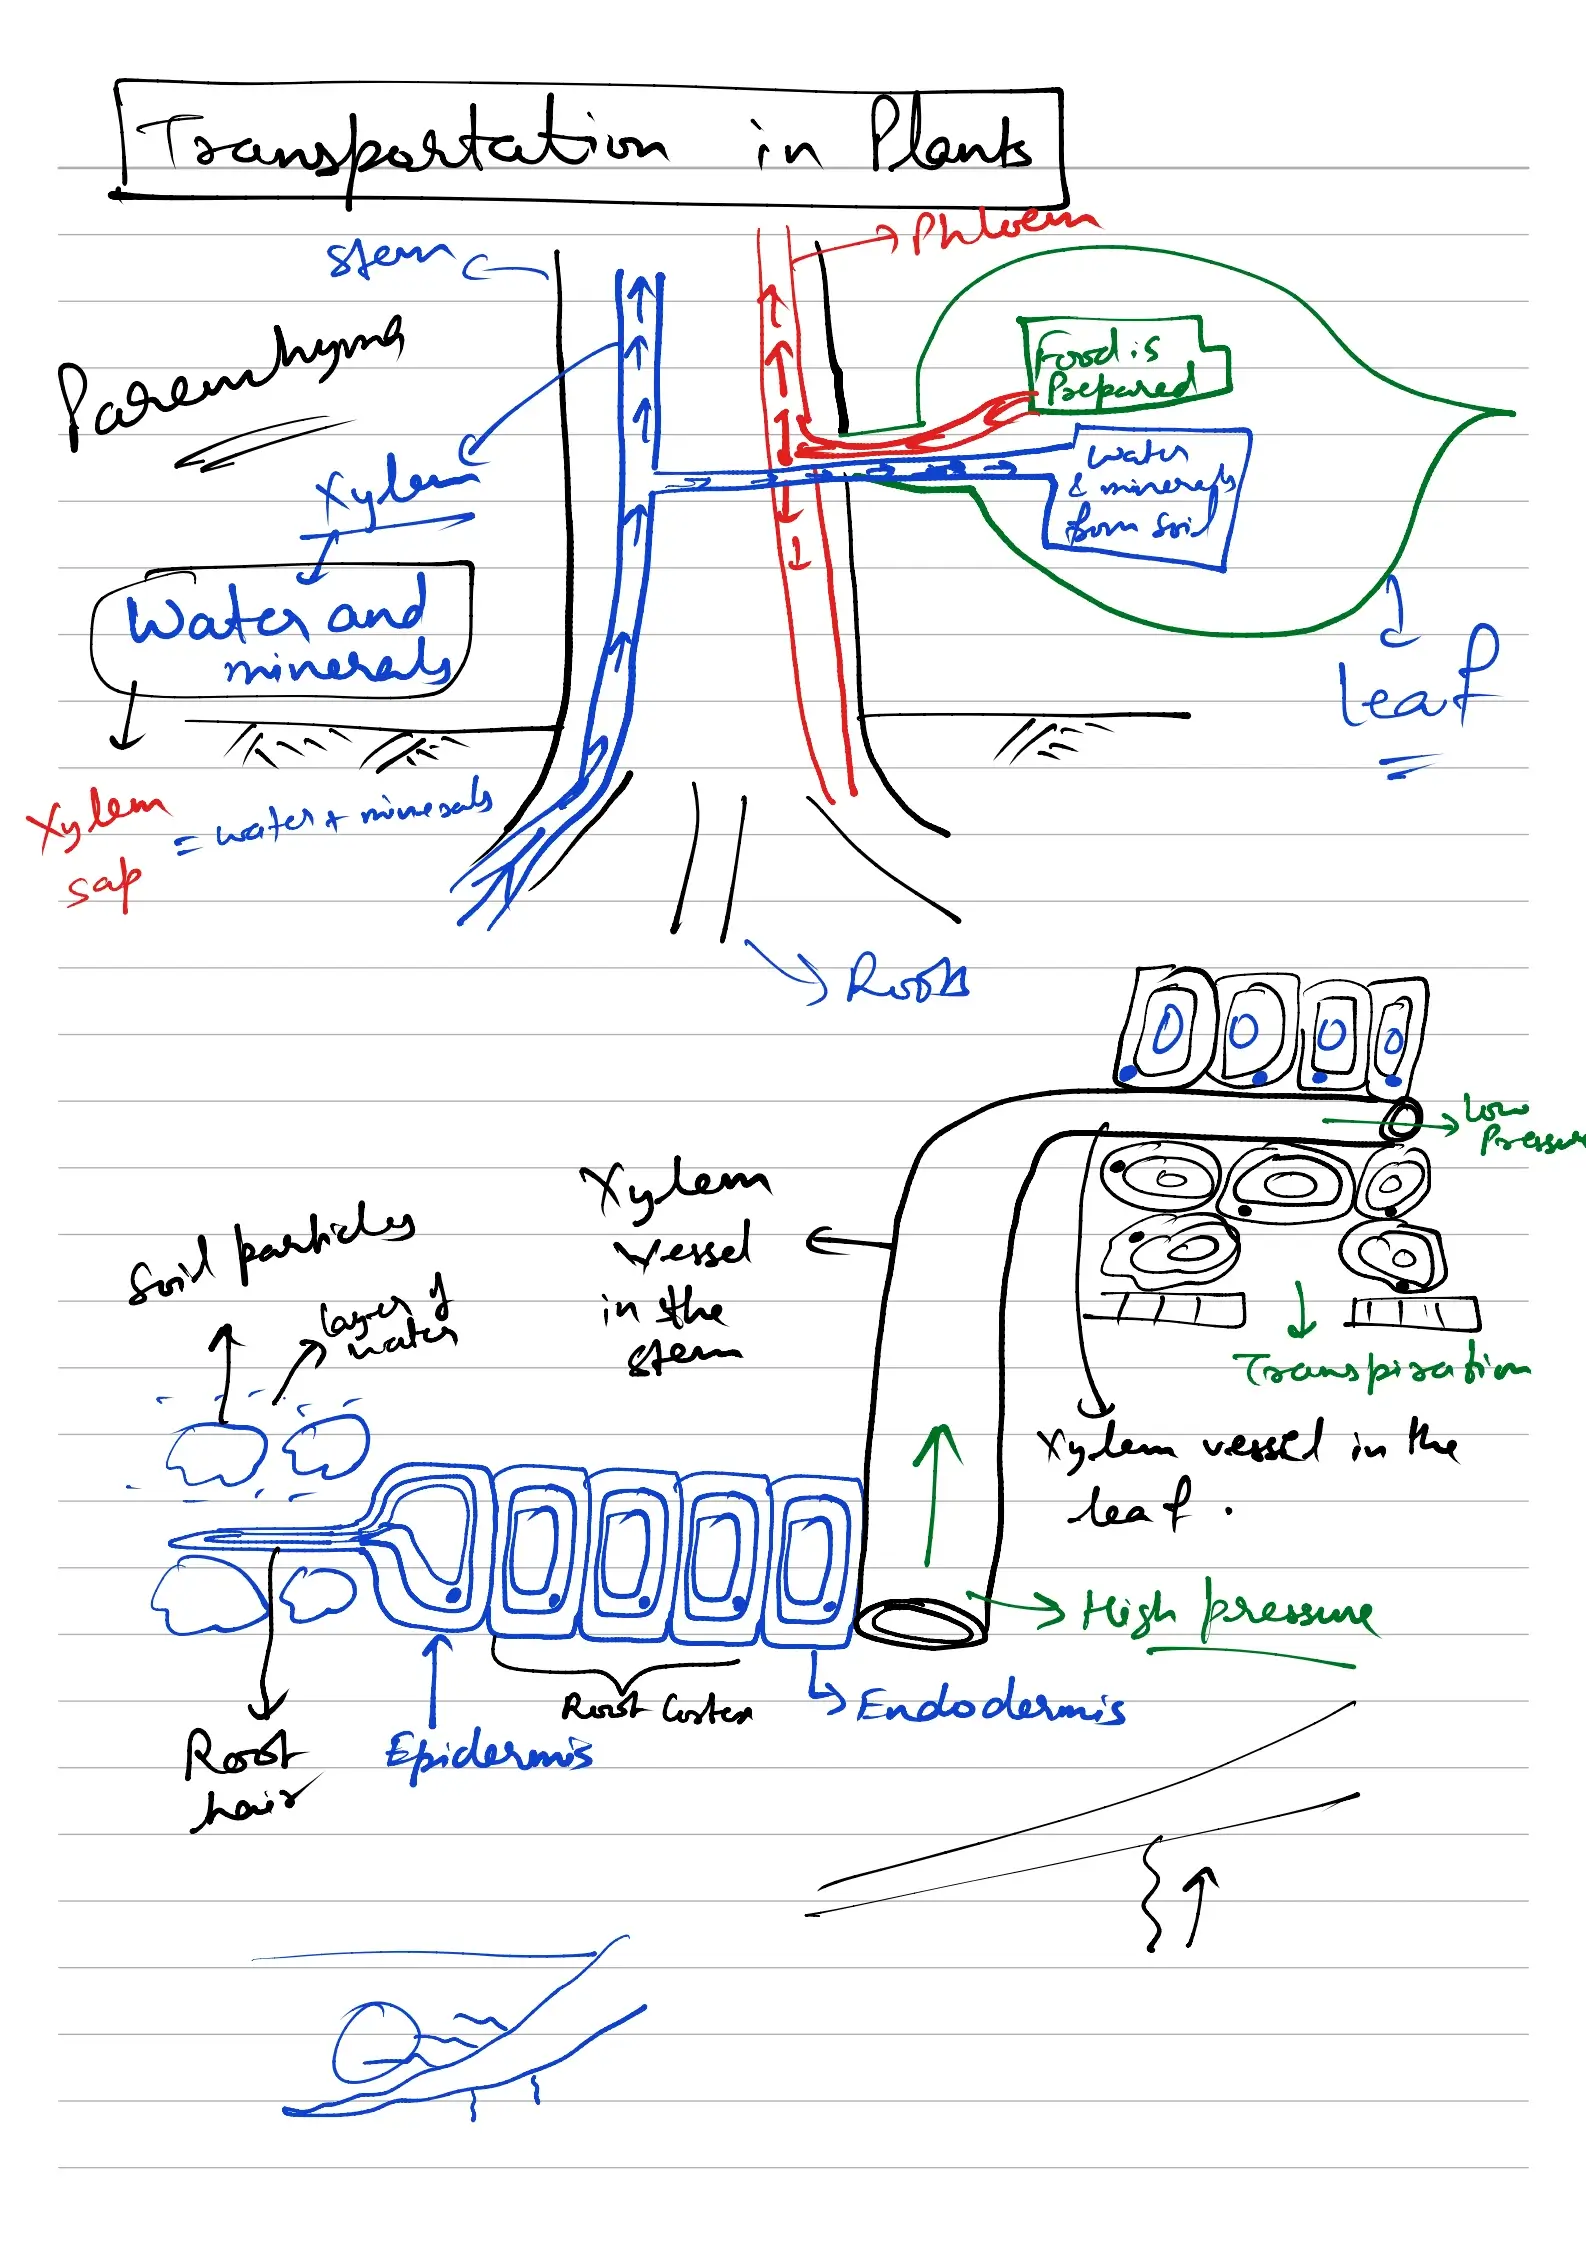 Transportation in Plants
Stem
Phloem
Parenchyma
Food is
Prepared
Xylem
Water
& minerals
from Soil
Water and
minerals
leaf
Xylem
sap
= water + minerals
Roots
Low
Pressure
Xylem
vessel
in the
stem
Soil particles
layer of
water
Transpiration
Xylem vessel in the
leaf.
High pressure
Root Cortex
Endodermis
Epidermis
Root
hair